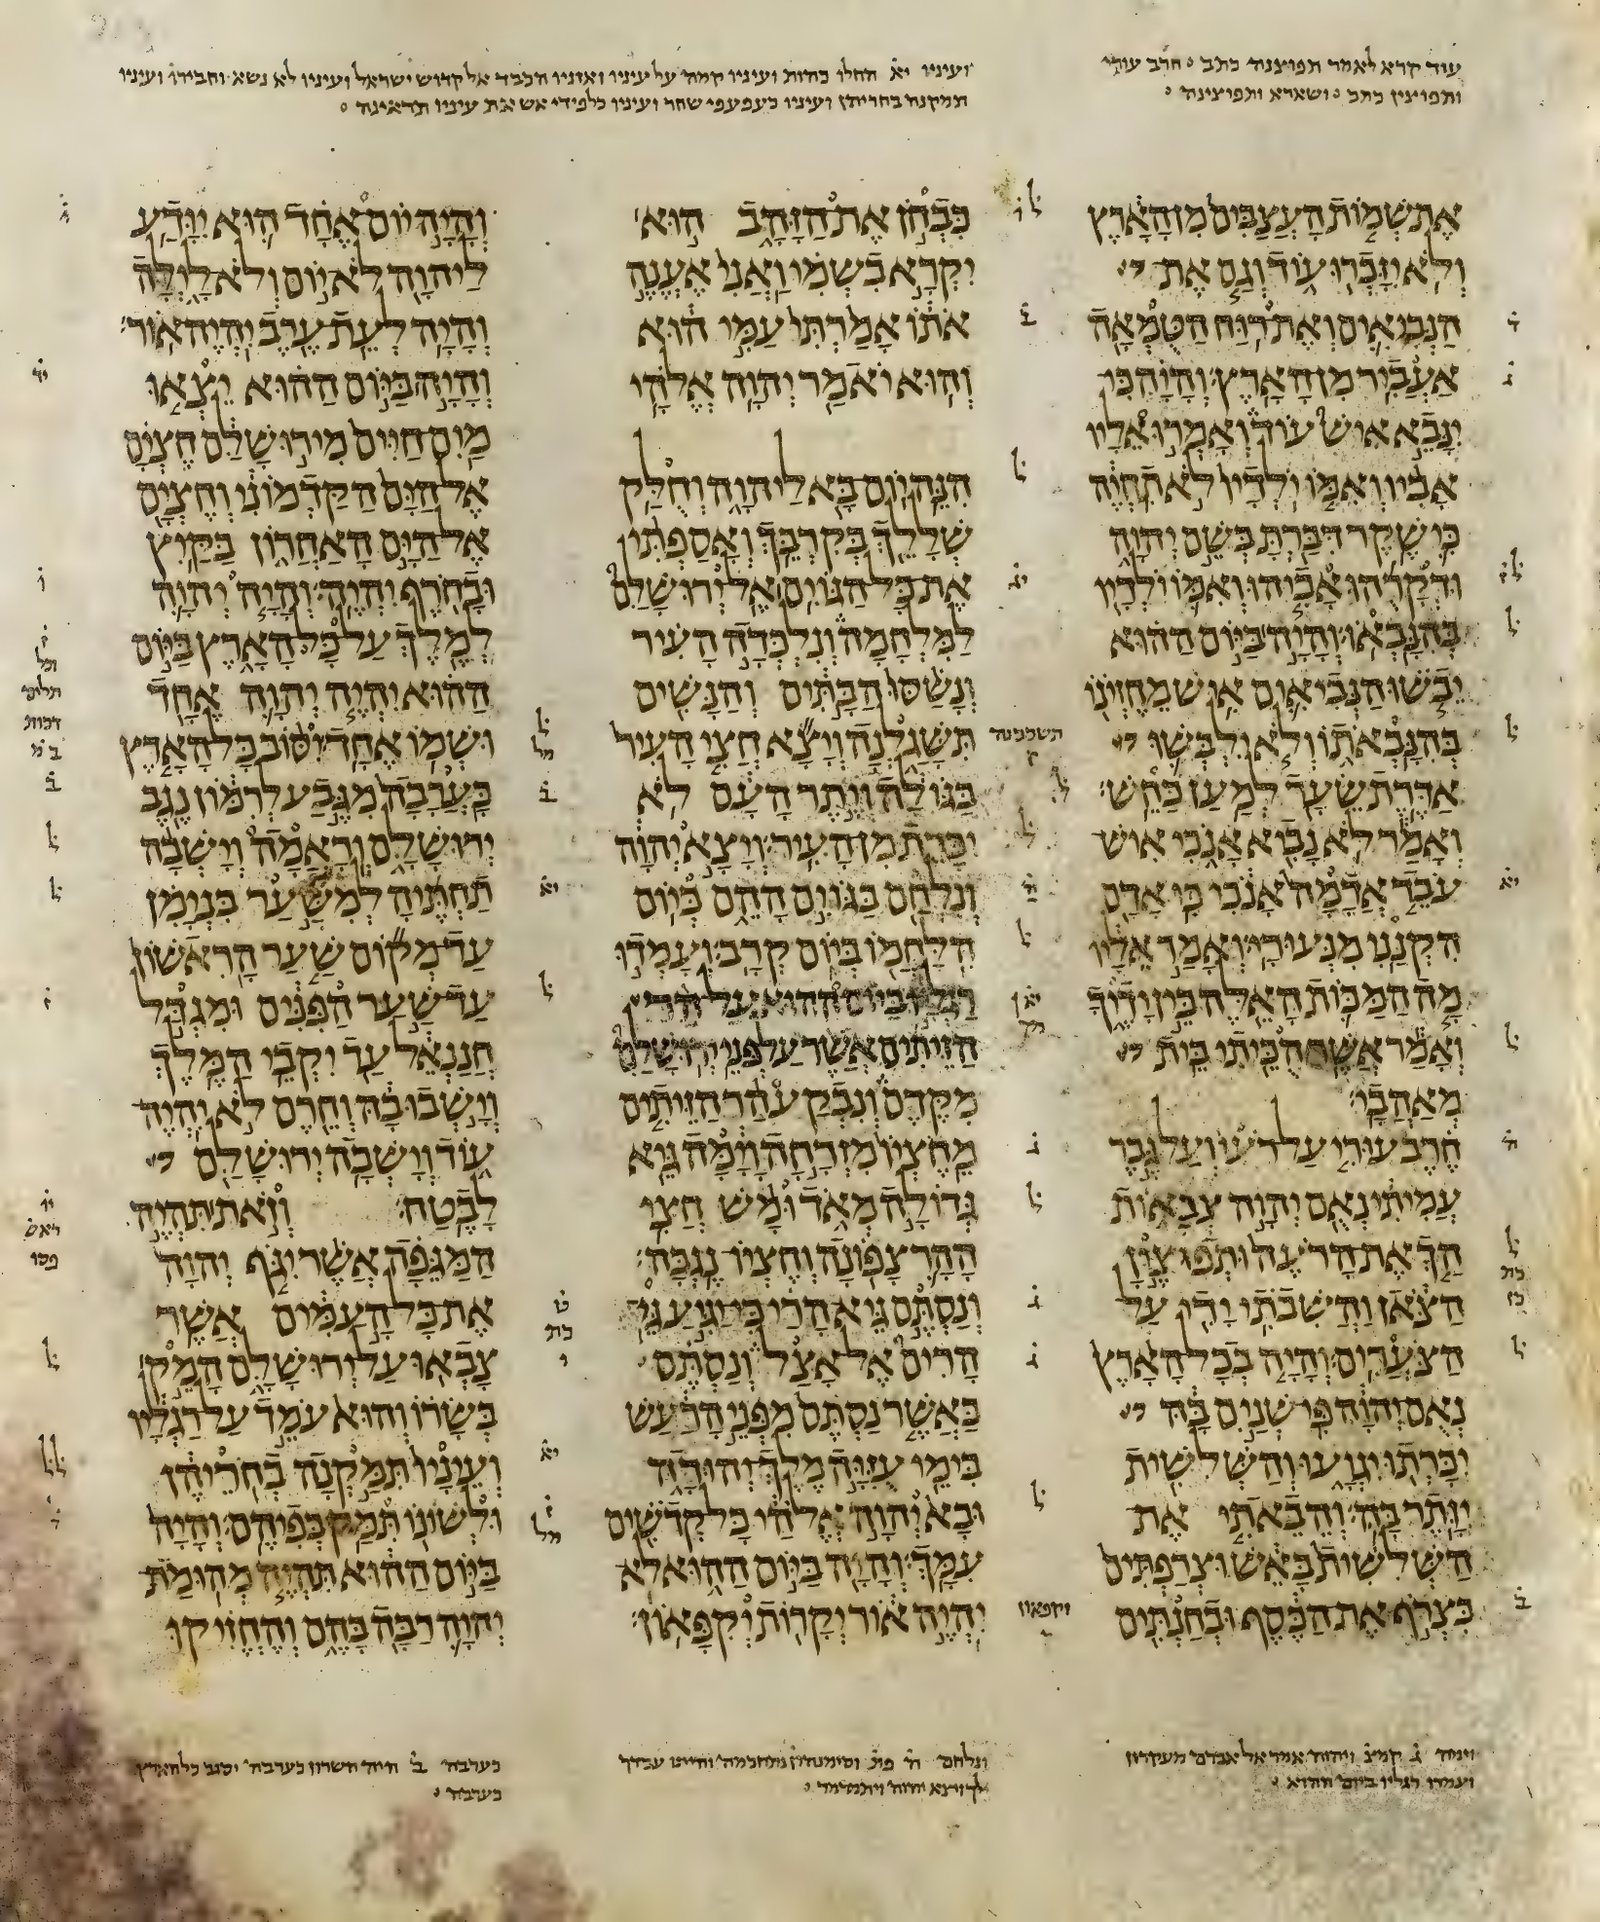 עוד קרא לאמר תפוצנה כתב ° חרב עורי
ותפוצין כתב ° ושארא ותפוצינה °
ועיניו יא החלו כהות ועיניו קמה על עיניו ואזניו הכבד אל קדוש ישראל ועיניו לא נשא וחבירו ועיניו
תמקנה בחריהן ועיניו כעפעפי שחר ועיניו כלפידי אש את עיניו תראינה °
את שמות העצבים מן הארץ
ולא יזכרו עוד וגם את
הנביאים ואת רוח הטמאה
אעביר מן הארץ׃ והיה כי
ינבא איש עוד ואמרו אליו
אביו ואמו ילדיו לא תחיה
כי שקר דברת בשם יהוה
ודקרהו אביהו ואמו ילדיו
בהנבאו׃ והיה ביום ההוא
יבשו הנביאים איש מחזינו
בהנבאתו ולא ילבשו
אדרת שער למען כחש׃
ואמר לא נביא אנכי איש
עבד אדמה אנכי כי אדם
הקנני מנעורי׃ ואמר אליו
מה המכות האלה בין ידיך
ואמר אשר הכיתי בית
מאהבי׃
חרב עורי על רעי ועל גבר
עמיתי נאם יהוה צבאות
הך את הרעה ותפוצין
הצאן והשבתי ידי על
הצערים׃ והיה בכל הארץ
נאם יהוה פי שנים בה
יכרתו יגועו והשלשית
יותר בה׃ והבאתי את
השלשית באש וצרפתים
כצרף את הכסף ובחנתים
כבחן את הזהב הוא
יקרא בשמי ואני אענה
אתו אמרתי עמי הוא
והוא יאמר יהוה אלהי׃
הנה יום בא ליהוה וחלק
שללך בקרבך׃ ואספתי
את כל הגוים אל ירושלם
למלחמה ונלכדה העיר
ונשסו הבתים והנשים
תשגלנה ויצא חצי העיר
בגולה ויתר העם לא
יכרת מן העיר׃ ויצא יהוה
ונלחם בגוים ההם כיום
הלחמו ביום קרב׃ ועמדו
רגליו ביום ההוא על הר
הזיתים אשר על פני ירושלם
מקדם ונבקע הר הזיתים
מחציו מזרחה וימה גיא
גדולה מאד ומש חצי
ההר צפונה וחציו נגבה׃
ונסתם גיא הרי כי יגיע גי
הרים אל אצל ונסתם
כאשר נסתם מפני הרעש
בימי עזיה מלך יהודה
ובא יהוה אלהי כל קדשים
עמך׃ והיה ביום ההוא לא
יהיה אור יקרות יקפאון׃
והיה יום אחד הוא יודע
ליהוה לא יום ולא לילה
והיה לעת ערב יהיה אור׃
והיה ביום ההוא יצאו
מים חיים מירושלם חצים
אל הים הקדמוני וחצים
אל הים האחרון בקיץ
ובחרף יהיה׃ והיה יהוה
למלך על כל הארץ ביום
ההוא יהיה יהוה אחד
ושמו אחד׃ יסוב כל הארץ
כערבה מגבע לרמון נגב
ירושלם וראמה וישבה
תחתיה למשער בנימן
עד מקום שער הראשון
עד שער הפנים ומגדל
חננאל עד יקבי המלך׃
וישבו בה וחרם לא יהיה
עוד וישבה ירושלם
לבטח׃ וזאת תהיה
המגפה אשר יגף יהוה
את כל העמים אשר
צבאו על ירושלם המק
בשרו והוא עמד על רגליו
ועיניו תמקנה בחריהן
ולשונו תמק בפיהם׃ והיה
ביום ההוא תהיה מהומת
יהוה רבה בהם והחזיקו
ועמדו רגליו ביום ההוא °
ונלחם
לך ויצא יהוה
כערבה ב יסוב כל הארץ
כערבה °